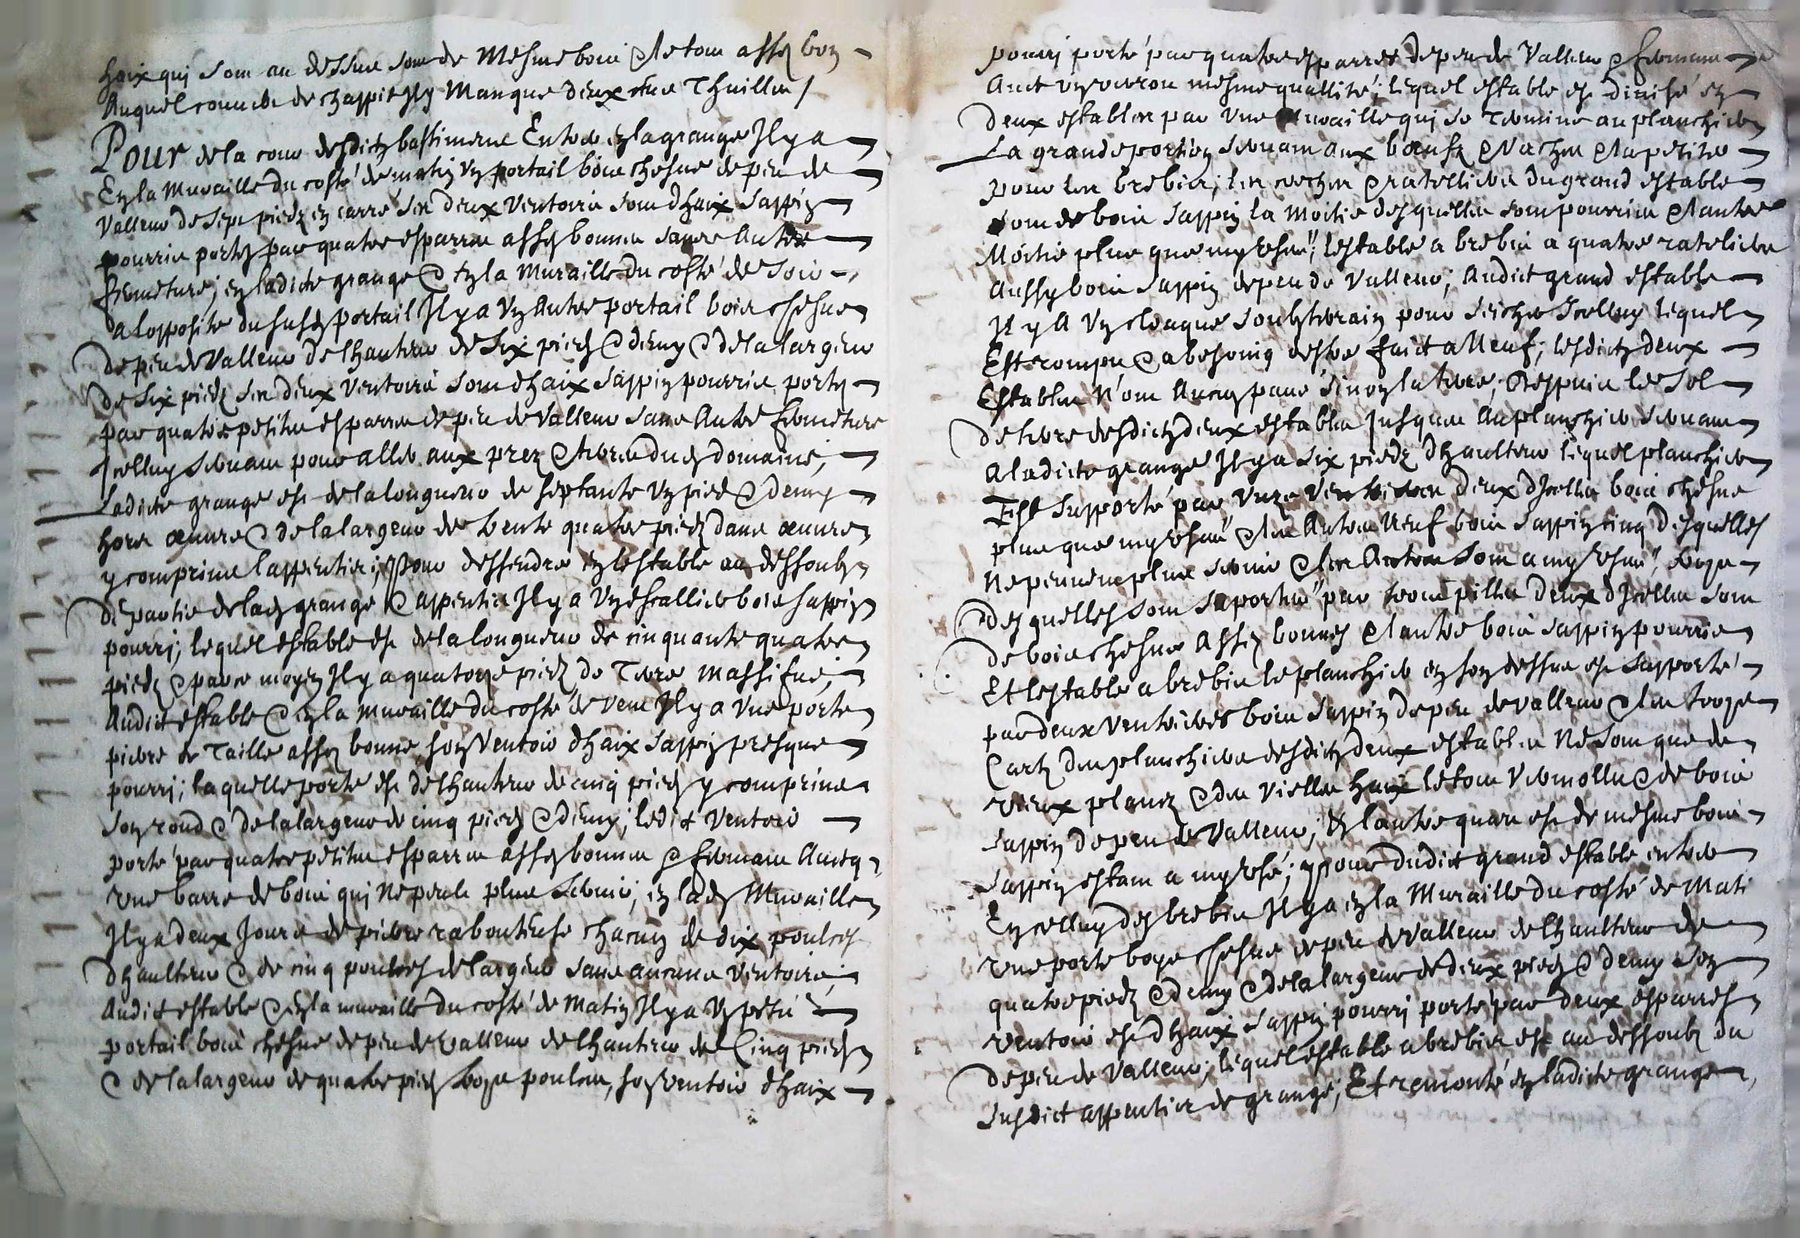 haix qui sont au dessus sont de mesme bois & le tout assez bon
Auquel couuert de chappit Il y manque deux cens Thuilles /
Pour de la cour desditz bastimens Entrer en la grange Il y a
En la muraille du costé de matin Un portail bois chesne de peu de
Valleur de sept piedz en carré ses deux Ventoirs sont d'haix sappin
pourris portez par quatre esparres assez bonnes sans Autre
fermeture; en ladicte grange & En la muraille du costé de soir
a lopposite du susd portail Il y a Un Autre portail bois chesne
de peu de Valleur de lhauteur de six piedz & demy & de la largeur
de six piedz ses deux Ventoirs sont d'haix sappin pourris portez
par quatre petites esparres de peu de Valleur sans Autre fermeture
Icelluy seruant pour aller aux prez & terres dud domaine;
Ladicte grange est de la longueur de septante Un pied & demy
hors œuure & de la largeur de trente quatre piedz dans œuure
y comprins lappentis; Pour dessendre en lestable au dessoubz
de partie de lad grange & appentis Il y a Un escallier bois sappin
pourri; lequel estable est de la longueur de cinquante quatre
piedz & par ce moyen Il y a quatorze piedz de Terre massifue;
Audict estable & En la muraille du costé de vent Il y a Une porte
pierre de Taille assez bonne, son Ventoir d'haix sappin presque
pourri; laquelle porte est de lhauteur de cinq piedz y comprins
son rond & de la largeur de cinq piedz & demy, ledict Ventoir
porté par quatre petites esparres assez bonnes & fermant Auecq
Une barre de bois qui ne peult plus seruir; en lad Muraille
Il y a deux Jours de pierre raboteuse chacun de dix poulces
d'haulteur & de cinq poulces de largeur sans aucuns Ventoirs;
Audict estable & En la muraille du costé de Matin Il y a Un petit
portail bois chesne de peu de valleur de lhauteur de Cinq piedz
& de la largeur de quatre piedz trois poulces, son ventoir d'haix
pourri porté par quatre esparres de peu de Valleur & fermant
Auec Un verrou mesme quallité; lequel estable est diuisé en
deux estables par Une muraille qui se termine au planchier
La grande portion seruant aux bœufz & Vaches & la petite
pour les brebis; les creches & rattelliers du grand estable
sont de bois sappin la moitié desquelles sont pourries & l'autre
Moitié plus que my Usée; lestable a brebis a quatre rateliers
Aussy bois sappin de peu de Valleur; Audict grand estable
Il y A Un cloaque soubsterrain pour seicher Icelluy lequel
Est rompu & a besoing destre faict a Neuf; lesdictz deux
Estables N'ont Aucun paué sinon la terre; & Despuis le sol
de terre desdictz deux estables Jusques Au planchier seruant
A ladicte grange Il y a six piedz d'haulteur lequel planchier
Est supporté par Unze Ventrieres deux d'Icelles bois chesne
plus que my Usées & les Autres Neuf bois sappin cinq desquelles
Ne peuuent plus seruir & les Autres sont a my Usées, trois
desquelles sont suportées par trois pilles deux d'Icelles sont
de bois chesne Assez bonnes & lautre bois sappin pourrie
Et lestable a brebis le planchier en son dessus est supporté
par deux Ventrieres bois sappin de peu de valleur & les trois
Cartz des planchiers desdictz deux estables Ne sont que de
vieux plancz & de Vielles haix le tout Vermollu & de bois
sappin de peu de Valleur; & lautre quart est de mesme bois
sappin estant a my Usé; & pour dudict grand estable entrer
En celluy des brebis Il y a en la Muraille du costé de Mati
Une porte boys chesne de peu de Valleur de lhaulteur de
quatre piedz & demy & de la largeur de deux piedz & demy son
Ventoir est d'haix sappin pourri porté par deux esparres
de peu de Valleur; lequel estable a brebis est au dessoubz du
susdict appentis de grange; Et remonté en ladicte grange